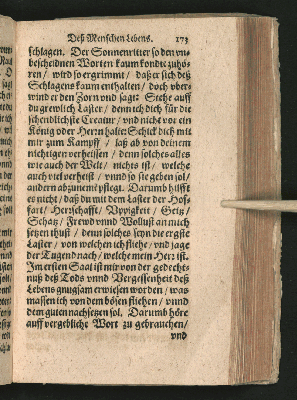 Deß Menschen Lebens. 173
schlagen. Der Sonnenritter so den vn-
bescheidnen Worten kaum kondte zuhö-
ren/ wird so ergrimmt/ daß er sich deß
Schlagens kaum enthalten/ doch vber-
wind er den Zorn vnd sagt: Siehe auff
du grewlich Laster/ denn ich dich für die
schendlichste Creatur/ vnd nicht vor ein
König oder Herrn halte: Schick dich mit
mir zum Kampff/ laß ab von deinem
nichtigen verheissen/ denn solches alles
wie auch der Welt/ nichts ist/ welche
auch viel verheist/ vnnd so sie geben sol/
andern abzunemē pflegt. Darumb hilfft
es nicht/ daß du mit dem Laster der Hof-
fart/ Herrschafft/ Vppigkeit/ Geitz/
Schatz/ Frewd vnnd Wollust an mich
setzen thust/ denn solches seyn die ergste
Laster/ von welchen ich fliehe/ vnd jage
der Tugend nach/ welche mein Herz ist.
Im ersten Saal ist mir von der gedecht-
nuß deß Tods vnnd Vergessenheit deß
Lebens gnugsam erwiesen worden/ was
massen ich von dem bösen fliehen/ vnnd
dem guten nachsetzen sol. Darumb höre
auff vergebliche Wort zu gebrauchen/
vnd